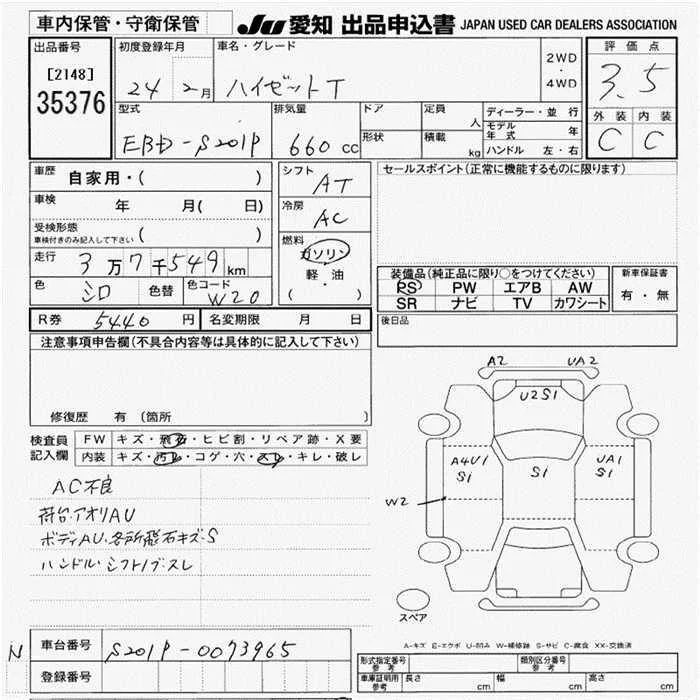 車内保管・守衛保管
JU 愛知 出品申込書 JAPAN USED CAR DEALERS ASSOCIATION
出品番号
[2148]
35376
初度登録年月
24 2月
車名・グレード
ハイゼットT
2WD
・
4WD
評価点
3.5
外装 内装
C C
型式
EBD-S201P
排気量
660cc
ドア
形状
定員
人
積載
kg
ディーラー・並行
モデル年式 年
ハンドル 左・右
車歴
自家用・( )
車検
年 月( 日)
受検形態
車検付きのみ記入して下さい ( )
走行
3万7千549km
色
シロ
色替
色コード
W20
シフト
AT
冷房
AC
燃料
ガソリン
・
軽・油
( )
セールスポイント(正常に機能するものに限ります)
装備品(純正品に限り○をつけてください)
PS PW エアB AW
SR ナビ TV カワシート
新車保証書
有・無
後日品
R券 5440円
名変期限 月 日
注意事項申告欄(不具合内容等は具体的に記入して下さい)
修復歴 有(箇所 )
検査員
記入欄
FW キズ・飛石・ヒビ割・リペア跡・X要
内装 キズ・汚れ・コゲ・穴・スレ・キレ・破レ
AC不良
荷台・アオリAU
ボディAU・各所飛石キズ・S
ハンドル・シフトノブ・スレ
A2 UA2
U2S1
A4U1
S1
S1
UA1
S1
W2
スペア
A-キズ E-エクボ U-凹み W-補修跡 S-サビ C-腐食 XX-交換済
N
車台番号 S201P-0073965
登録番号
形式指定番号
参考
類別区分番号
参考
車庫証明用
参考
長さ cm 幅 cm 高さ cm